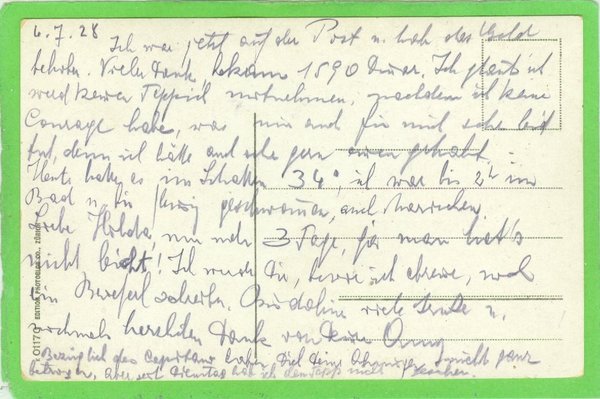 6.7.28
Ich war jetzt auf der Post u. hab das Geld
behoben. Vielen Dank, bekam 1590 Dinar. Ich glaub ich
werd keinen Teppich mitnehmen, nachdem ich keine
Courage habe, was mir auch für mich sehr leid
tut, denn ich hätte auch sehr gern einen gehabt.
Heute hatte es im Schatten 34°, ich war bis 2h im
Bad u. bin fleissig geschwommen, auch
Liebe Hilda, nun mehr 3 Tage, ja man hat's
nicht leicht! Ich werde Dir, bevor ich abreise, noch
ein schreiben. Bis dahin viele u.
nochmals herzlichen Dank von Deiner
Bezüglich des Dich Deine nicht ganz
betrogen, aber seit Dienstag hab ich den nicht gesehen.
01170 EDITION PHOTOGLOB CO., ZÜRICH